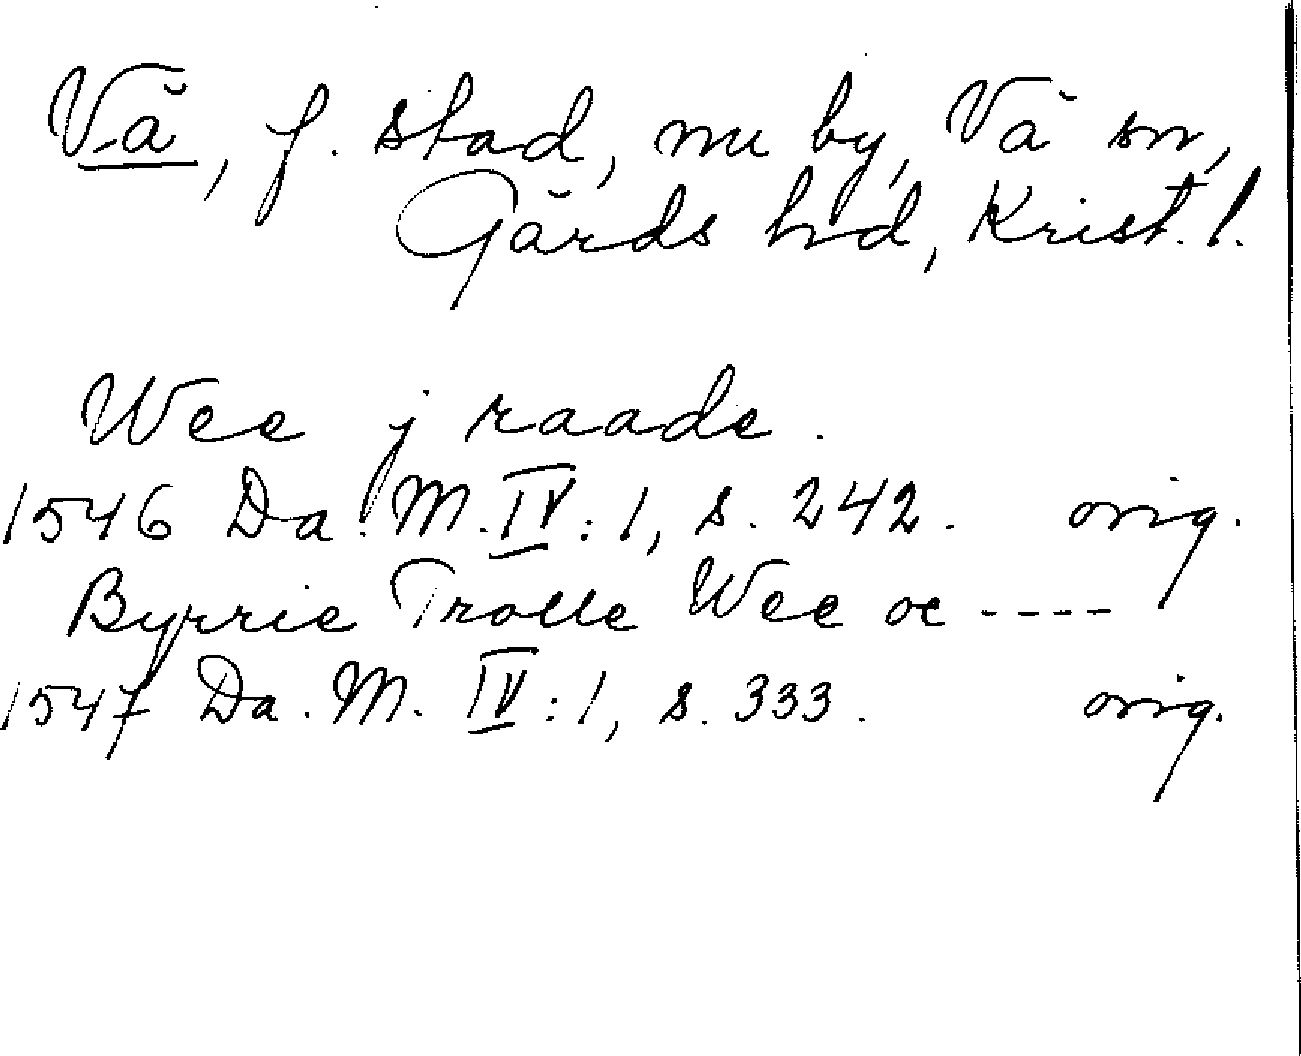 Vä, f. stad, nu by, Vä sn,
Gärds hd, Krist. l.
Wee j raade.
1546 Da. M. IV: 1, s. 242. orig.
Byrrie Trolle Wee oc ----
1547 Da. M. IV: 1, s. 333. orig.